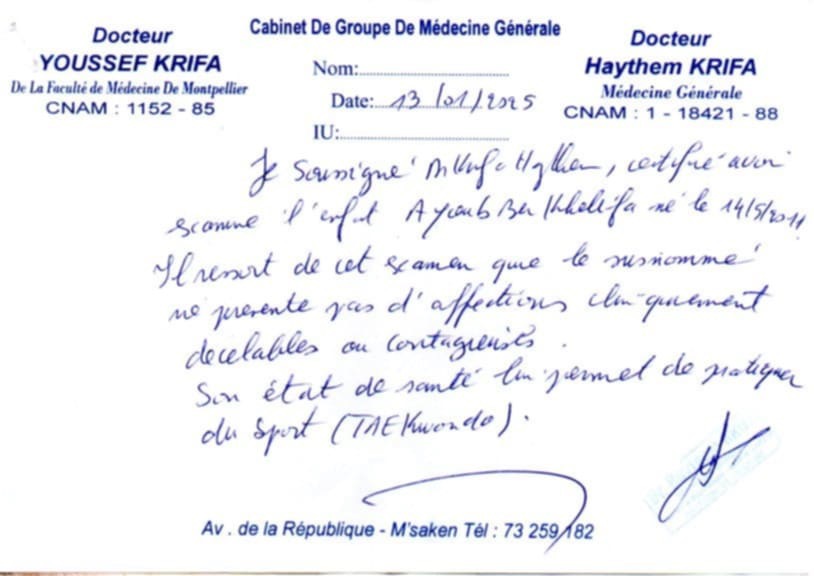 Cabinet De Groupe De Médecine Générale
Docteur
YOUSSEF KRIFA
De La Faculté de Médecine De Montpellier
CNAM : 1152 - 85
Nom:
Date: 13/01/2025
IU:
Docteur
Haythem KRIFA
Médecine Générale
CNAM : 1 - 18421 - 88
Je Soussigné Dr Krifa Haythem, certifié avoir
examiné l'enfant Ayoub Ben Khelifa né le 14/5/2011
Il ressort de cet examen que le susnommé
ne présente pas d'affections cliniquement
décelables ou contagieuses.
Son état de santé lui permet de pratiquer
du Sport (TAEKwondo).
Av . de la République - M'saken Tél : 73 259 182